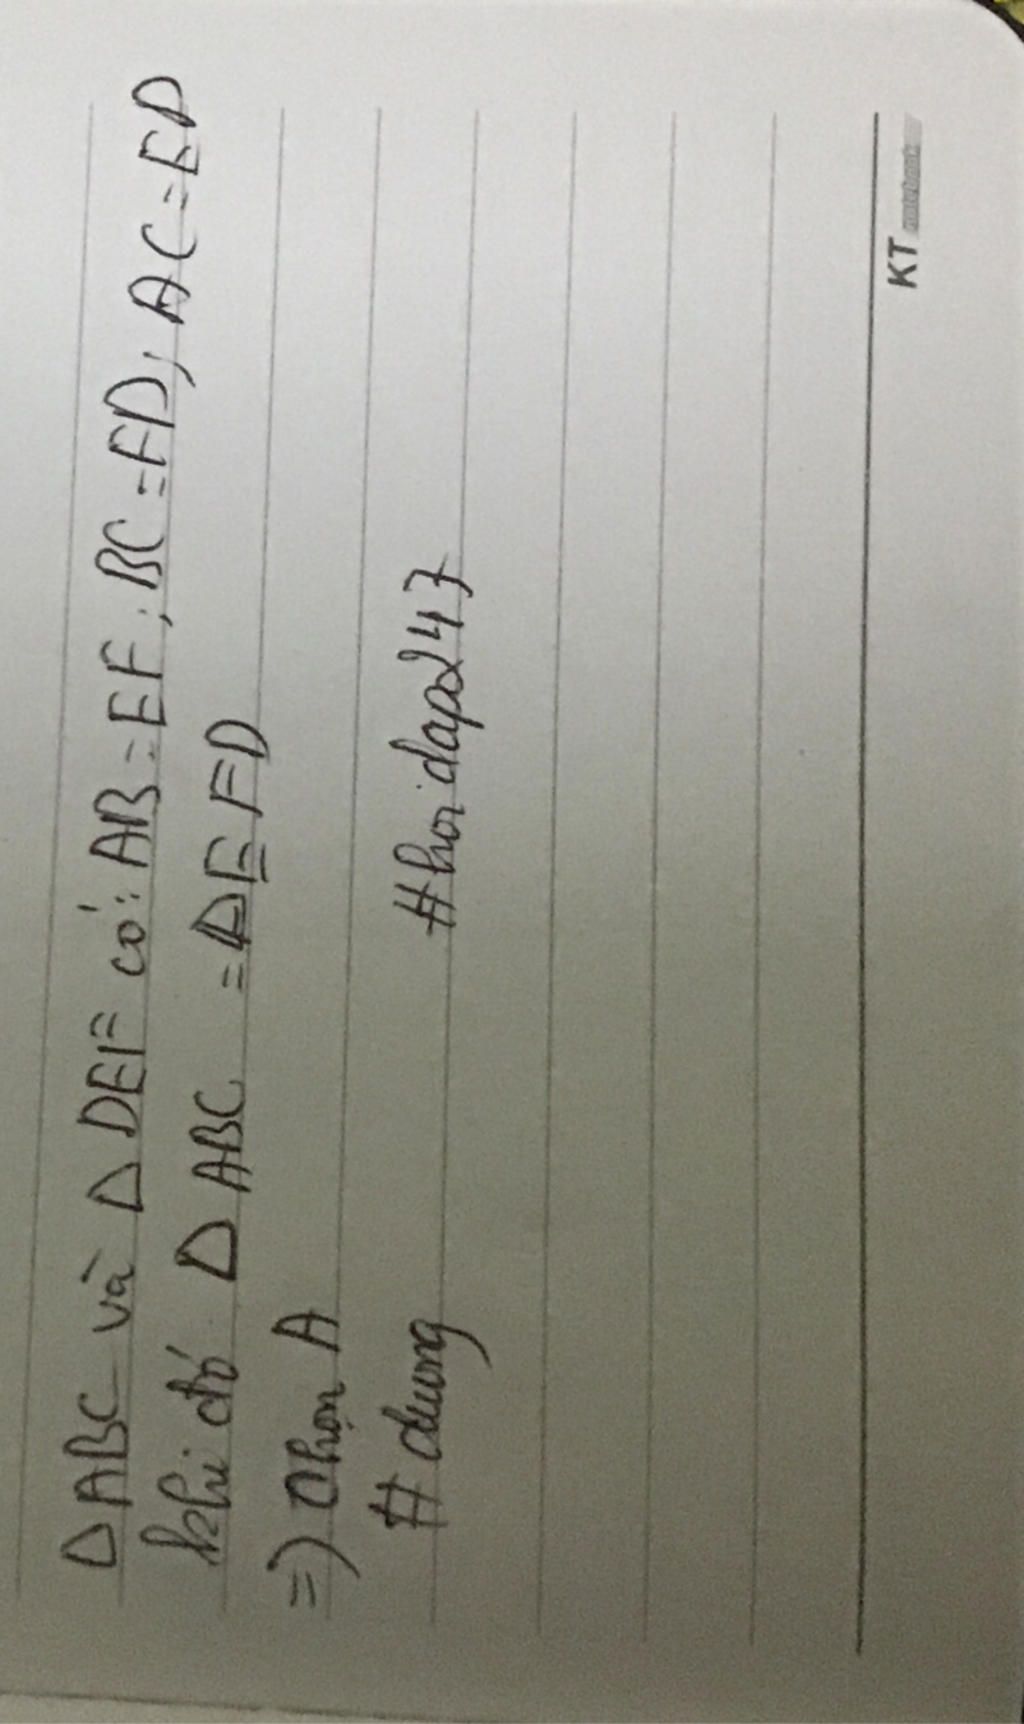 Δ ABC và Δ DEF có: AB = EF; BC = FD; AC = ED
khi đó Δ ABC = Δ EFD
=) Chọn A
# dung #hoidap247
KT notebook